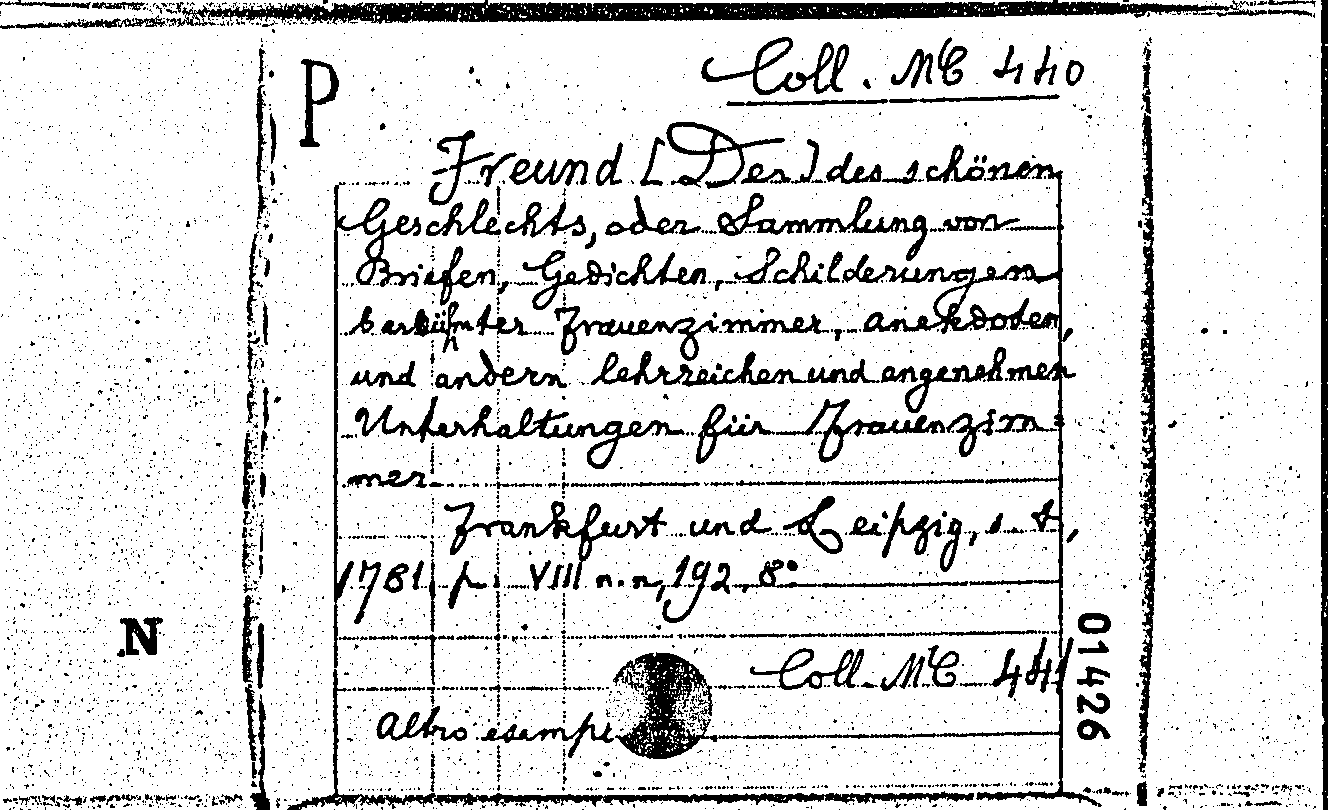 P
Coll. MC 440
Freund [Der] des schönen
Geschlechts, oder Sammlung von
Briefen, Gedichten, Schilderungen
Frauenzimmer, anekdoten,
und andern lehrreichen und angenehmen
Unterhaltungen für Frauenzim=
mer.
Frankfurt und Leipzig, s. t,
1781. p. VIII n.n, 192. 8°
N
Coll. MC 441
Altro
01426